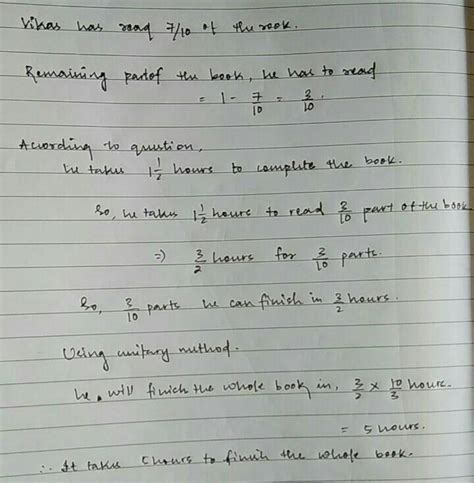 Vikas has read 7/10 of the book.
Remaining part of the book, he has to read
= 1 - 7/10 = 3/10.
According to question,
he takes 1 1/2 hours to complete the book.
So, he takes 1 1/2 hours to read 3/10 part of the book
=> 3/2 hours for 3/10 parts.
So, 3/10 parts he can finish in 3/2 hours.
Using unitary method.
he will finish the whole book in, 3/2 × 10/3 hours.
= 5 hours.
∴ It takes 5 hours to finish the whole book.